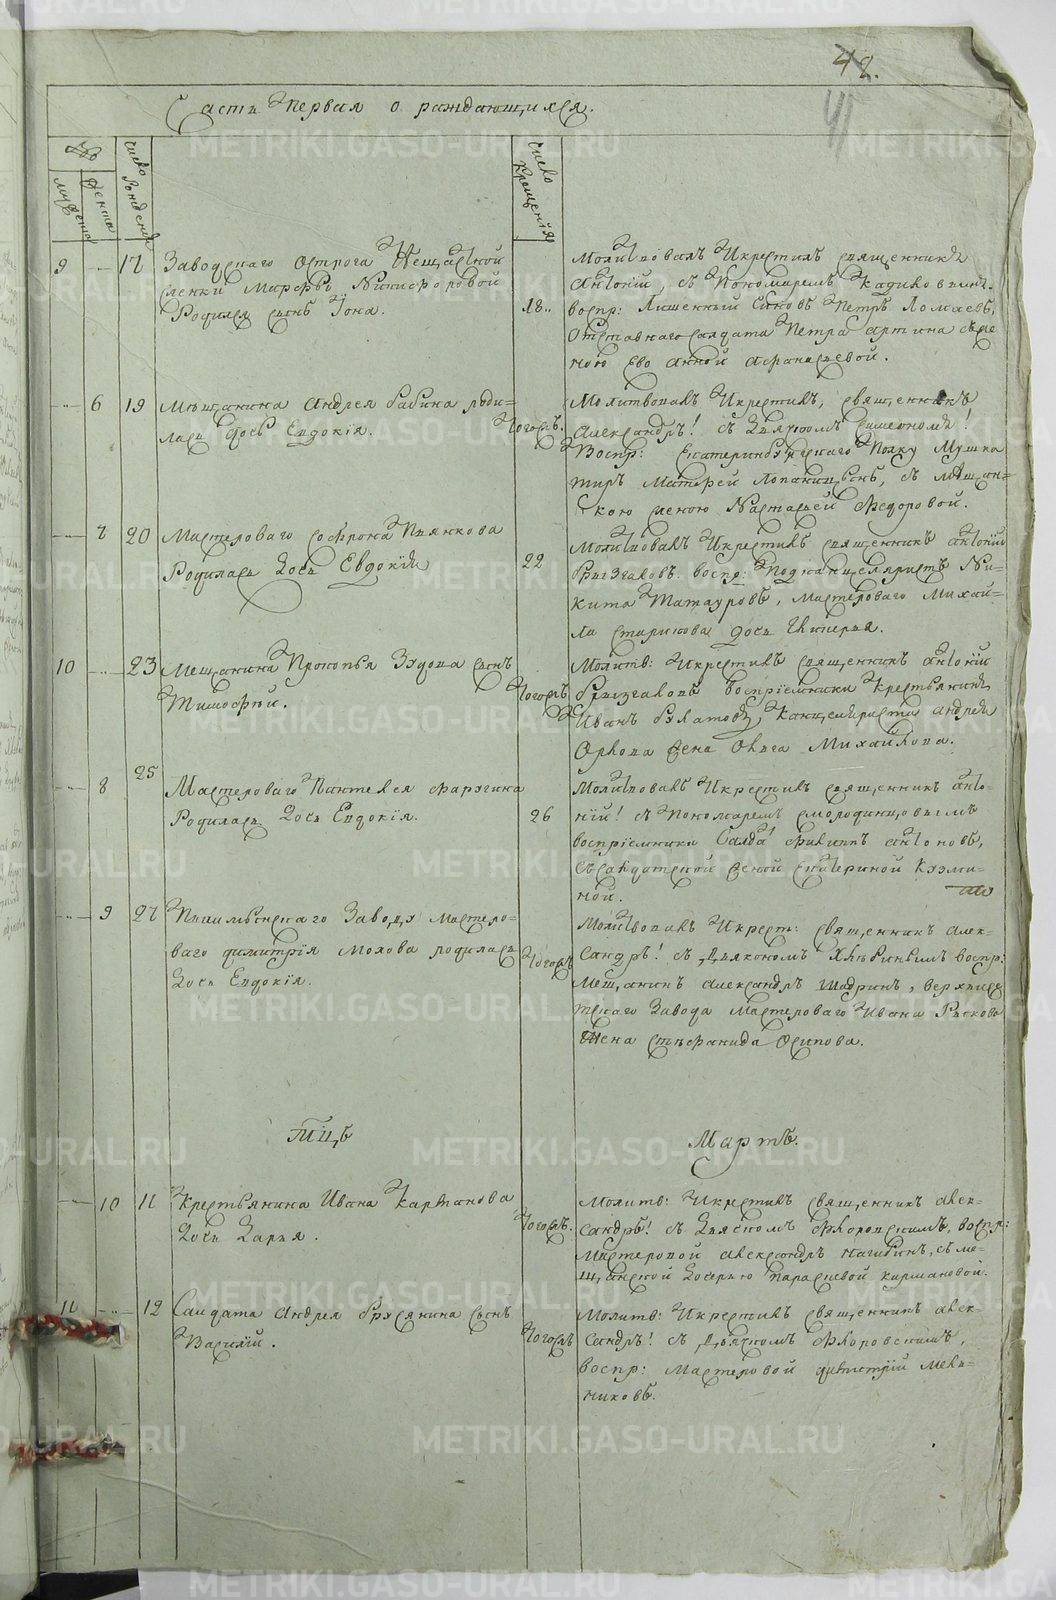 42.
41
Часть Первая о раждающихся.
Число Рождения
Число Крещения
9 17 Заводскаго острога Нещастной
женки Марфы Никифоровой
Родился сынъ Iона.
18.
Молитвовалъ Икрестилъ священникъ
Антонiй, съ Пономаремъ
воспр: Лишенный Петръ
Отставнаго солдата Петра Артина
ною Ево Анной Афанасьевой.
6 19 Мѣщанина Андрея Бабина роди-
лась дочь Евдокiя.
Тогожъ.
Молитвовалъ Икрестилъ, священникъ
Александръ! съ Дьячкомъ Симеономъ!
Воспр: Екатеринбургскаго Полку Мушка
тиръ Матфей съ мѣщан-
кою женою Настасьей Федоровой.
7 20 Мастероваго Софрона Пьянкова
Родилась дочь Евдокiя
22
Молитвовалъ Икрестилъ священникъ Антонiй
воспр: Подканцеляристъ Ни-
кита Татауровъ, мастероваго Михай-
ла Старикова дочь
10 23 Мещанина Прокопья сынъ
Тимофѣй.
Тогожъ
Молитв: Икрестилъ священникъ Антонiй
Воспрiемники крестьянинъ
Иванъ Канцеляриста Андрея
Орлова жена Ольга Михайлова.
8 25 Мастероваго Пантелея Фарузина
Родилась дочь Евдокiя.
26
Молитвовалъ Икрестилъ священникъ Анто-
нiй! съ Пономаремъ Смородинцовымъ
воспрiемники Филиппъ Антоновъ,
съ солдатской женой Екатериной Кузми-
ной.
9 27 Пышминскаго Заводу мастеро-
ваго Димитрiя Мохова родилась
дочь Евдокiя.
Тогожъ
Молитвовалъ Икрест: священникъ Алек-
сандръ! съ Дьякономъ Хлѣбинымъ воспр:
Мещанинъ Александръ Шадринъ, Верхъисе
тскаго Завода Мастероваго Ивана
Жена Стефанида Осипова.
Мцъ Мартъ.
10 11 Крестьянина Ивана Карманова
дочь Дарья.
Тогожъ.
Молитв: Икрестилъ священникъ Алек-
сандръ! съ Дьячкомъ Флоровскимъ, воспр:
Мастеровой Александръ Нагибинъ, съ ме-
щанской дочерью Параскевой Кармановой.
11 12 Салдата Андрея Брусянина сынъ
Василiй.
Тогожъ
Молитв: Икрестилъ священникъ Алек-
сандръ! съ Дьячкомъ Флоровскимъ,
воспр: Мастеровой Дмитрiй Мель-
никовъ.
METRIKI.GASO-URAL.RU